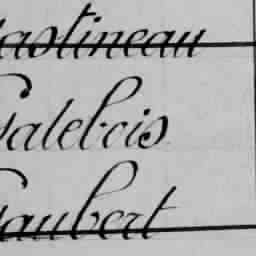 astineau
alebois
aubert